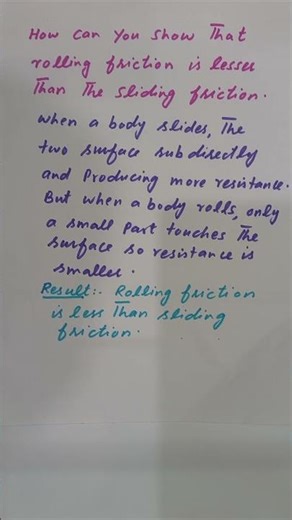 How can you show That
rolling friction is lesser
Than The sliding friction.
when a body slides, The
two surface subdirectly
and Producing more resistance.
But when a body rolls, only
a small part touches The
surface so resistance is
smaller.
Result:- Rolling friction
is less Than sliding
friction.